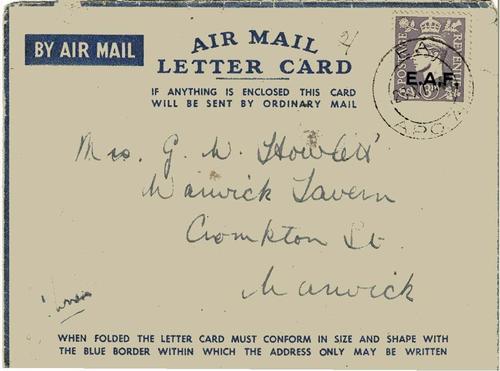 BY AIR MAIL
AIR MAIL
LETTER CARD
IF ANYTHING IS ENCLOSED THIS CARD
WILL BE SENT BY ORDINARY MAIL
POSTAGE REVENUE
E.A.F.
Mrs. G. W. Howlett
Warwick Tavern
Crompton St.
Warwick
WHEN FOLDED THE LETTER CARD MUST CONFORM IN SIZE AND SHAPE WITH
THE BLUE BORDER WITHIN WHICH THE ADDRESS ONLY MAY BE WRITTEN